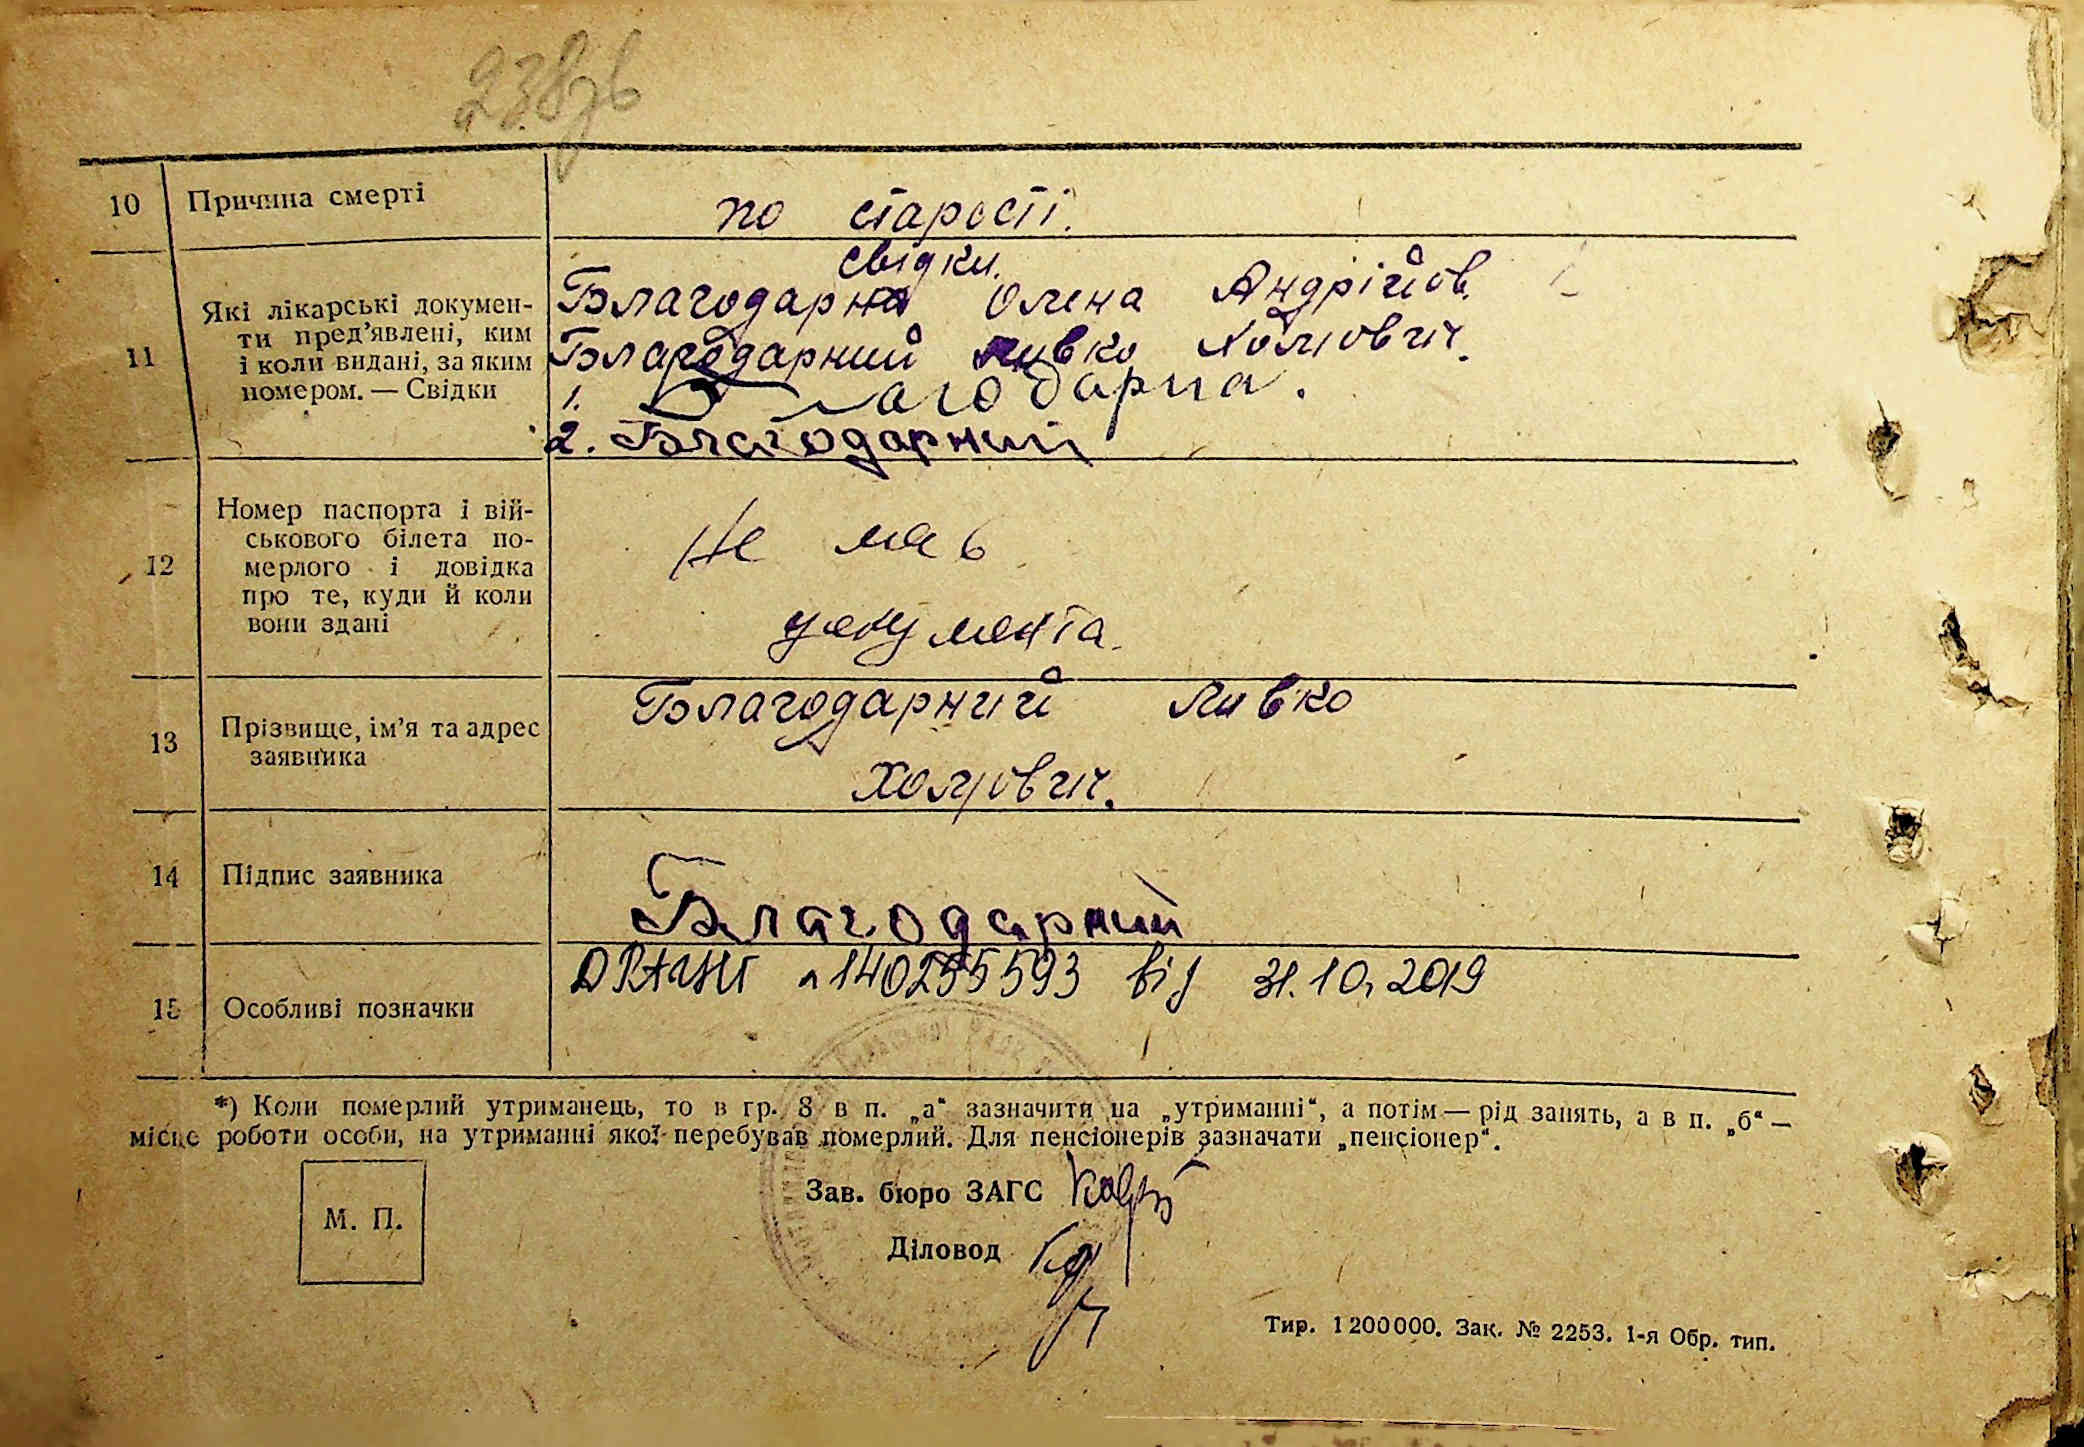 238зв
10 Причина смерті
по старості.
свідки.
11 Які лікарські докумен-
ти пред’явлені, ким
і коли видані, за яким
номером. — Свідки
Благодарна Олена Андрійов.
Благодарний Хомович.
1. Благодарна.
2. Благодарний
12 Номер паспорта і вій-
ськового білета по-
мерлого і довідка
про те, куди й коли
вони здані
Не мав
документа.
13 Прізвище, ім’я та адрес
заявника
Благодарний
Хомович.
14 Підпис заявника
Благодарний
15 Особливі позначки
ДРАЦСГ 140255593 від 31.10.2019
*) Коли померлий утриманець, то в гр. 8 в п. „а“ зазначити на „утриманні“, а потім — рід занять, а в п. „б“ —
місце роботи особи, на утриманні якої перебував померлий. Для пенсіонерів зазначати „пенсіонер“.
М. П.
Зав. бюро ЗАГС
Діловод
Тир. 1200000. Зак. № 2253. 1-я Обр. тип.